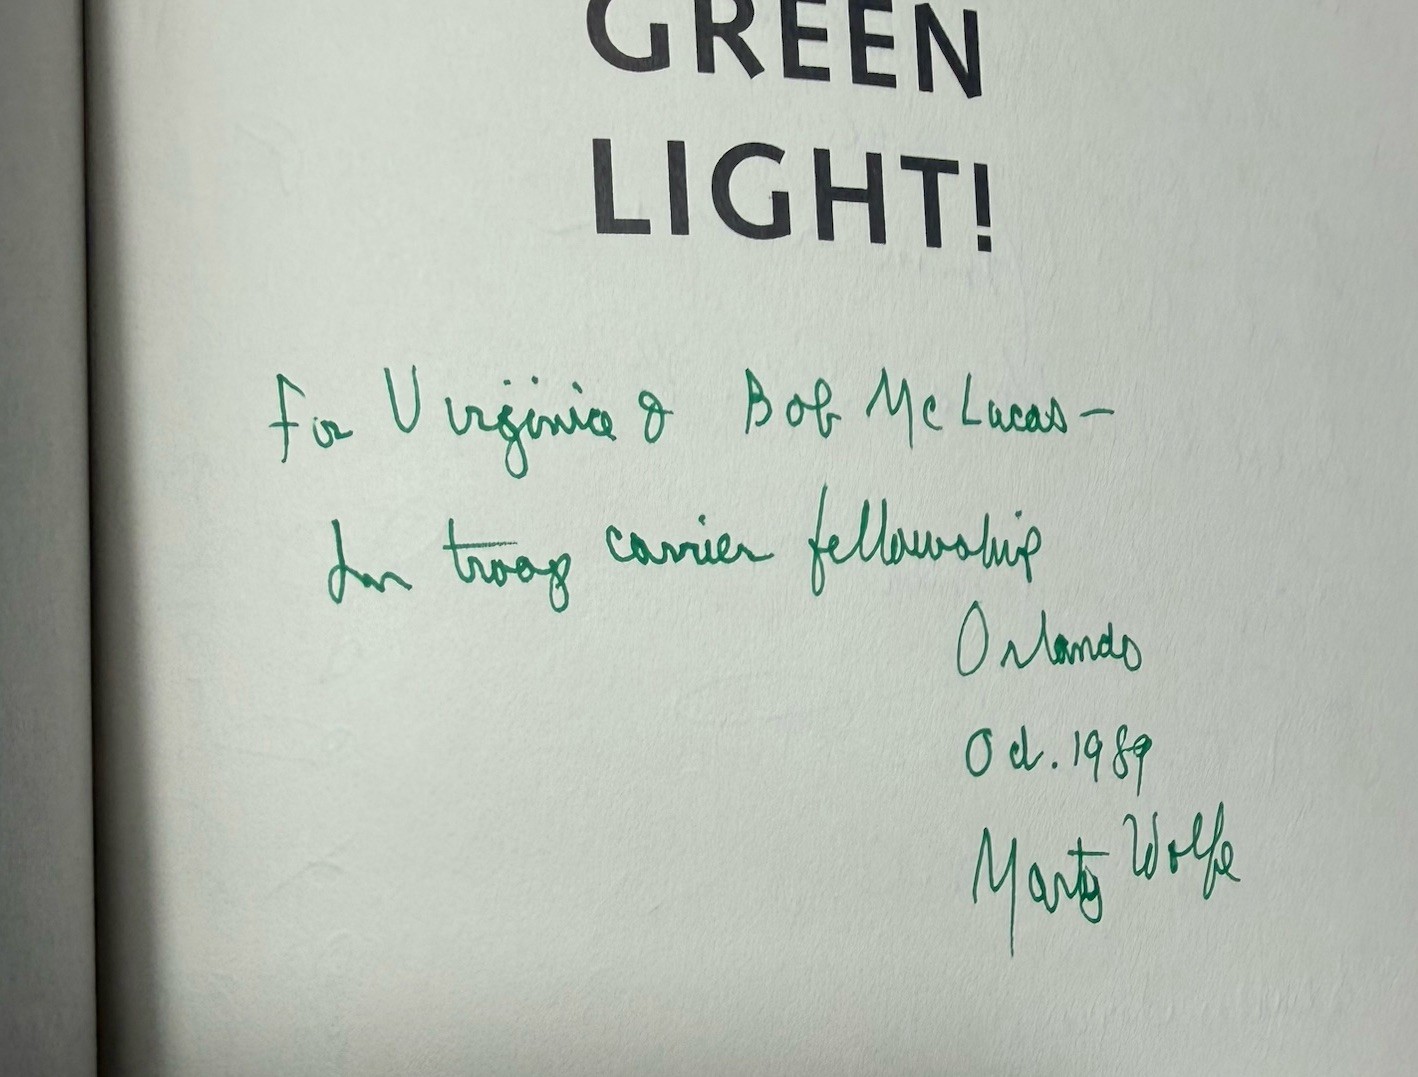 GREEN
LIGHT!
For Virginia & Bob McLucas—
In troop carrier fellowship
Orlando
Oct. 1989
Marty Wolfe